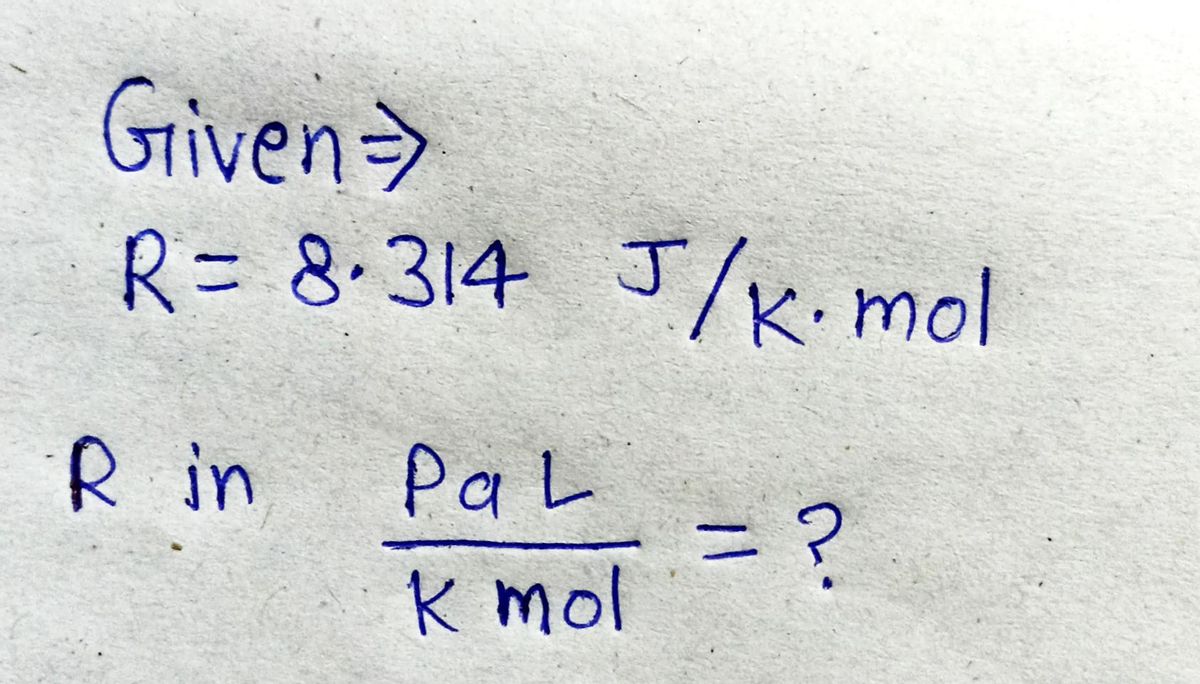 Given ⇒
R = 8.314 J/K.mol
R in Pa L / K mol = ?